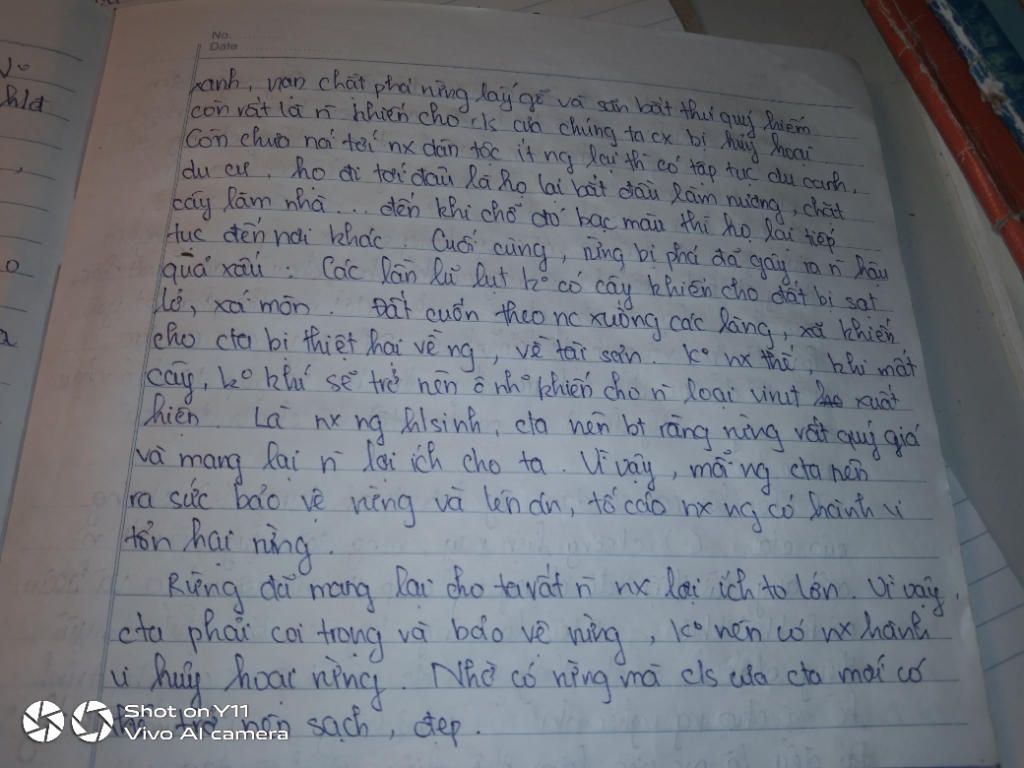 No. ..........
Date ..........
xanh, nạn chặt phá rừng lấy gỗ và săn bắt thú quý hiếm
còn rất là n` khiến cho c/s của chúng ta cx bị hủy hoại
Còn chưa nói tới nx dân tộc ít ng lại thì có tập tục du canh,
du cư, họ đi tới đâu là họ lại bắt đầu làm nương, chặt
cây làm nhà ... đến khi chỗ đó bạc màu thì họ lại tiếp
tục đến nơi khác. Cuối cùng, rừng bị phá đã gây ra n` hậu
quả xấu: Các lần lũ lụt ko có cây khiến cho đất bị sạt
lở, xói mòn. Đất cuốn theo nc xuống các làng, xã khiến
cho cta bị thiệt hại về ng, về tài sản. Ko nx thế, khi mất
cây, ko khí sẽ trở nên ô nh° khiến cho n` loại virut xuất
hiện. Là nx ng hlsinh, cta nên bt rằng rừng rất quý giá
và mang lại n` lợi ích cho ta. Vì vậy, mỗi ng cta nên
ra sức bảo vệ rừng và lên án, tố cáo nx ng có hành vi
tổn hại rừng.
Rừng đã mang lại cho ta rất n` nx lợi ích to lớn. Vì vậy,
cta phải coi trọng và bảo vệ rừng, ko nên có nx hành
vi hủy hoại rừng. Nhờ có rừng mà c/s của cta mới có
thể trở nên sạch, đẹp.
Shot on Y11
Vivo AI camera